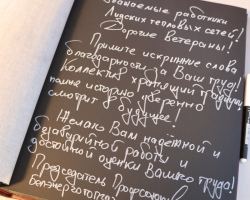 Уважаемые работники
Лидских тепловых сетей!
Дорогие ветераны!
Примите искренние слова
благодарности за Ваш труд!
Коллектив хранящий традиции
помня историю уверенно
смотрит в будущее!
Желаю Вам надежной и
безаварийной работы и
достойной оценки Вашего труда!
Председатель Профсоюза
Белэнерготопгаз